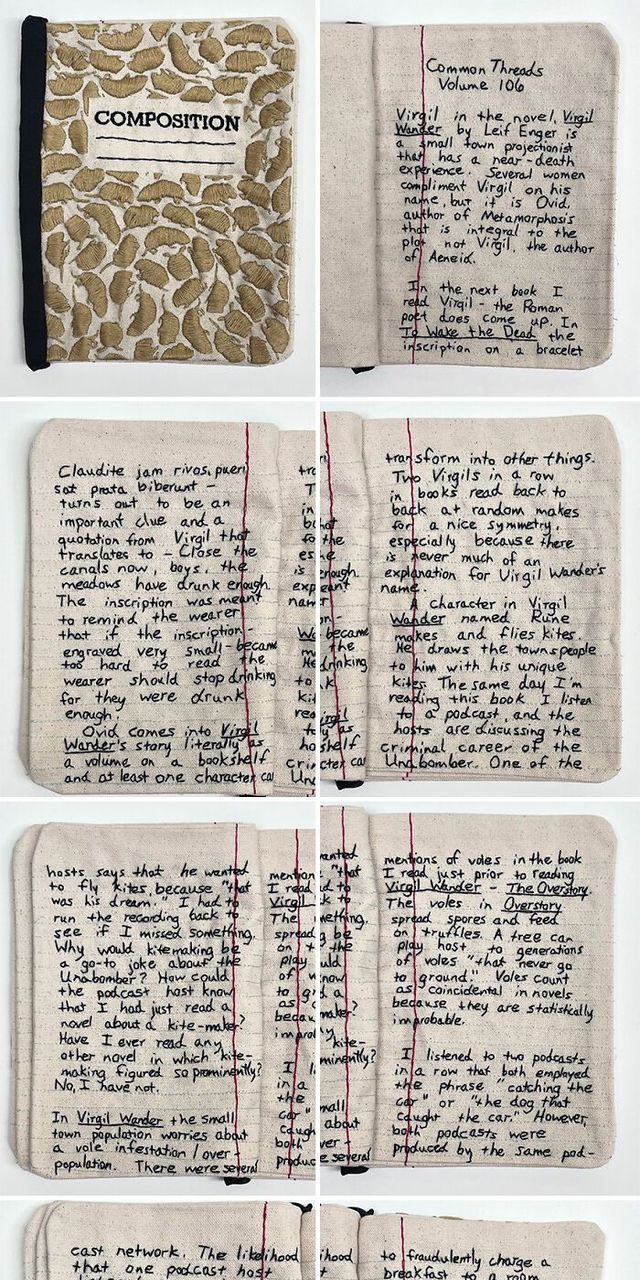 COMPOSITION
Common Threads
Volume 106
Virgil in the novel, Virgil
Wander by Leif Enger is
a small town projectionist
that has a near-death
experience. Several women
compliment Virgil on his
name, but it is Ovid,
author of Metamorphosis
that is integral to the
plot not Virgil, the author
of Aeneid.
In the next book I
read Virgil - the Roman
poet does come up. In
To Wake the Dead the
inscription on a bracelet
Claudite jam rivos, pueri
sat prata biberunt -
turns out to be an
important clue and a
quotation from Virgil that
translates to - Close the
canals now, boys, the
meadows have drunk enough.
The inscription was meant
to remind the wearer
that if the inscription-
engraved very small-became
too hard to read the
wearer should stop drinking
for they were drunk
enough.
Ovid comes into Virgil
Wander's story literally as
a volume on a bookshelf
and at least one character can
transform into other things.
Two Virgils in a row
in books read back to
back at random makes
for a nice symmetry,
especially because there
is never much of an
explanation for Virgil Wander's
name.
A character in Virgil
Wander named Rune
makes and flies kites.
He draws the townspeople
to him with his unique
kites. The same day I'm
reading this book I listen
to a podcast, and the
hosts are discussing the
criminal career of the
Unabomber. One of the
hosts says that he wanted
to fly kites, because "that
was his dream." I had to
run the recording back to
see if I missed something.
Why would kitemaking be
a go-to joke about the
Unabomber? How could
the podcast host know
that I had just read a
novel about a kite-maker?
Have I ever read any
other novel in which kite-
making figured so prominently?
No, I have not.
In Virgil Wander the small
town population worries about
a vole infestation/over-
population. There were several
mentions of voles in the book
I read just prior to reading
Virgil Wander - The Overstory.
The voles in Overstory
spread spores and feed
on truffles. A tree can
play host to generations
of voles "that never go
to ground." Voles count
as coincidental in novels
because they are statistically
improbable.
I listened to two podcasts
in a row that both employed
the phrase "catching the
car" or "the dog that
caught the car." However,
both podcasts were
produced by the same pod-
cast network. The likelihood
that one podcast host
to fraudulently charge a
breakfast to a room